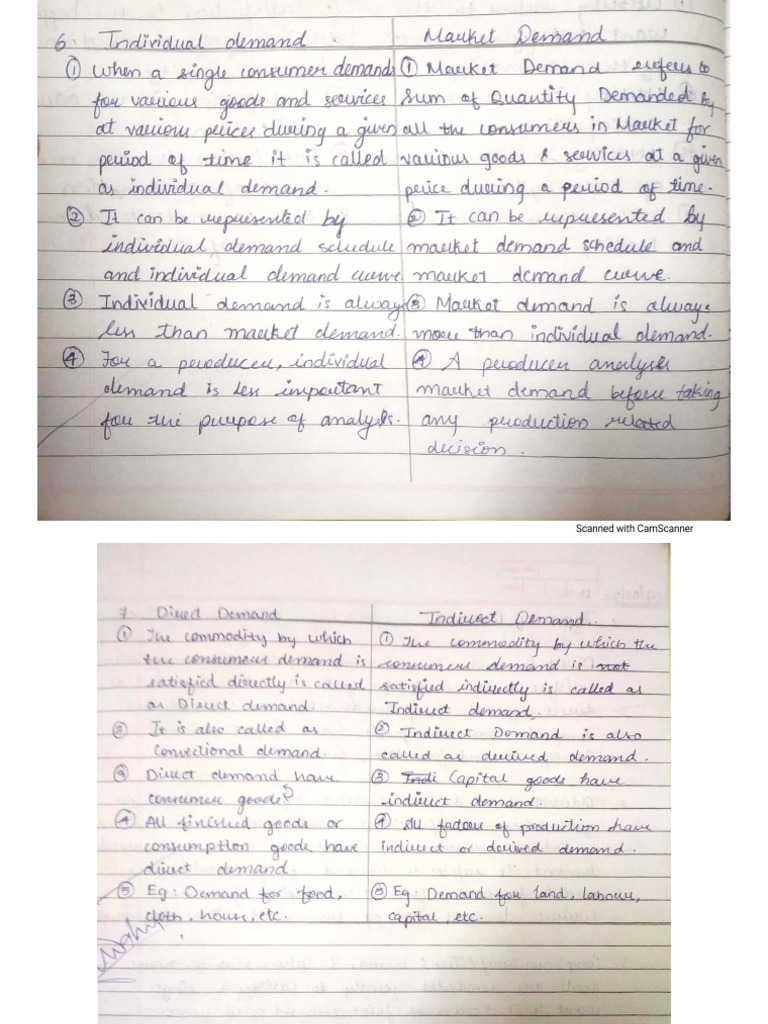 6. Individual demand.
① When a single consumer demands
for various goods and services
at various prices during a given
period of time it is called
as individual demand.
② It can be represented by
individual demand schedule
and individual demand curve.
③ Individual demand is always
less than market demand.
④ For a producer, individual
demand is less important
for the purpose of analysis.
Market Demand
① Market Demand refers to
sum of Quantity Demanded by
all the consumers in Market for
various goods & services at a given
price during a period of time.
② It can be represented by
market demand schedule and
market demand curve.
③ Market demand is always
more than individual demand.
④ A producer analysis
market demand before taking
any production related
decision.
Scanned with CamScanner
7. Direct Demand
① The commodity by which
the consumers demand is
satisfied directly is called
as Direct demand.
② It is also called as
Convectional demand.
③ Direct demand have
consumer goods
④ All finished goods or
consumption goods have
direct demand
⑤ Eg: Demand for food,
cloth, house, etc.
Indirect Demand.
① The commodity by which the
consumers demand is not
satisfied indirectly is called as
Indirect demand.
② Indirect Demand is also
called as derived demand.
③ Indi Capital goods have
indirect demand.
④ All factors of production have
indirect or derived demand.
⑤ Eg: Demand for land, labour,
capital, etc.